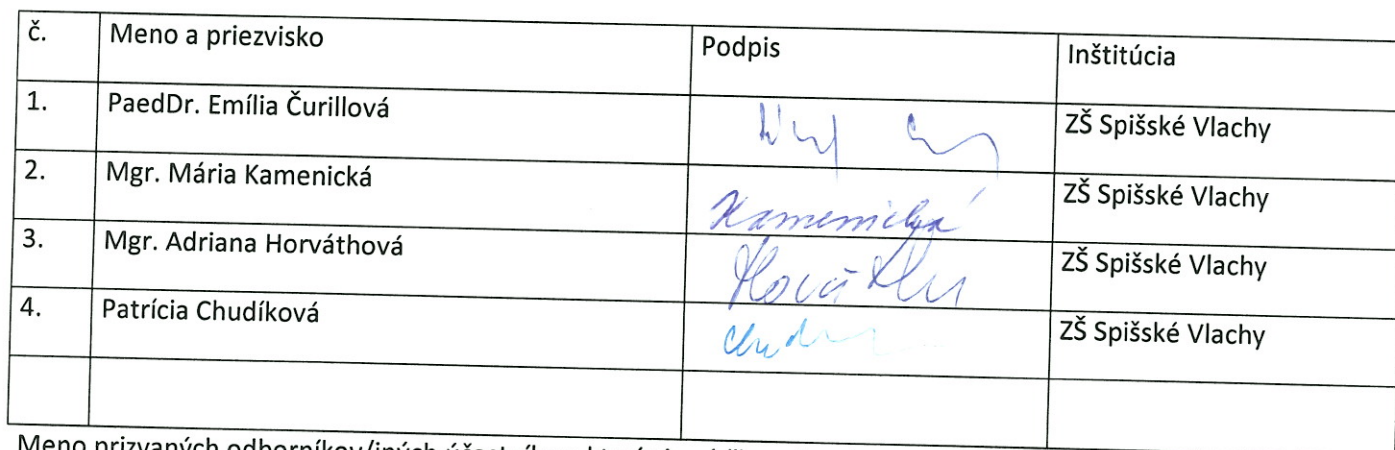 č. Meno a priezvisko Podpis Inštitúcia
1. PaedDr. Emília Čurillová ZŠ Spišské Vlachy
2. Mgr. Mária Kamenická Kamenická ZŠ Spišské Vlachy
3. Mgr. Adriana Horváthová ZŠ Spišské Vlachy
4. Patrícia Chudíková ZŠ Spišské Vlachy
Meno prizvaných odborníkov/iných